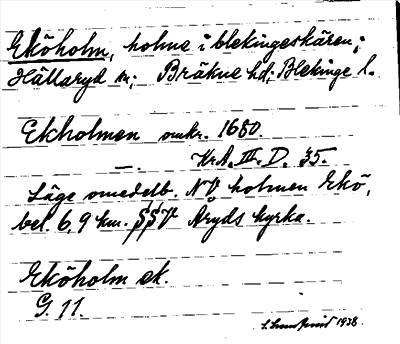 Eköholm, holme i blekingeskären;
Hällaryd sn; Bräkne hd; Blekinge l.
Ekholmen omkr. 1680
— KrA. III. D. 35.
Läge omedelb. NV holmen Ekö,
bel. 6,9 km. SSV Åryds kyrka.
Eköholm ek.
G. 11.
1938